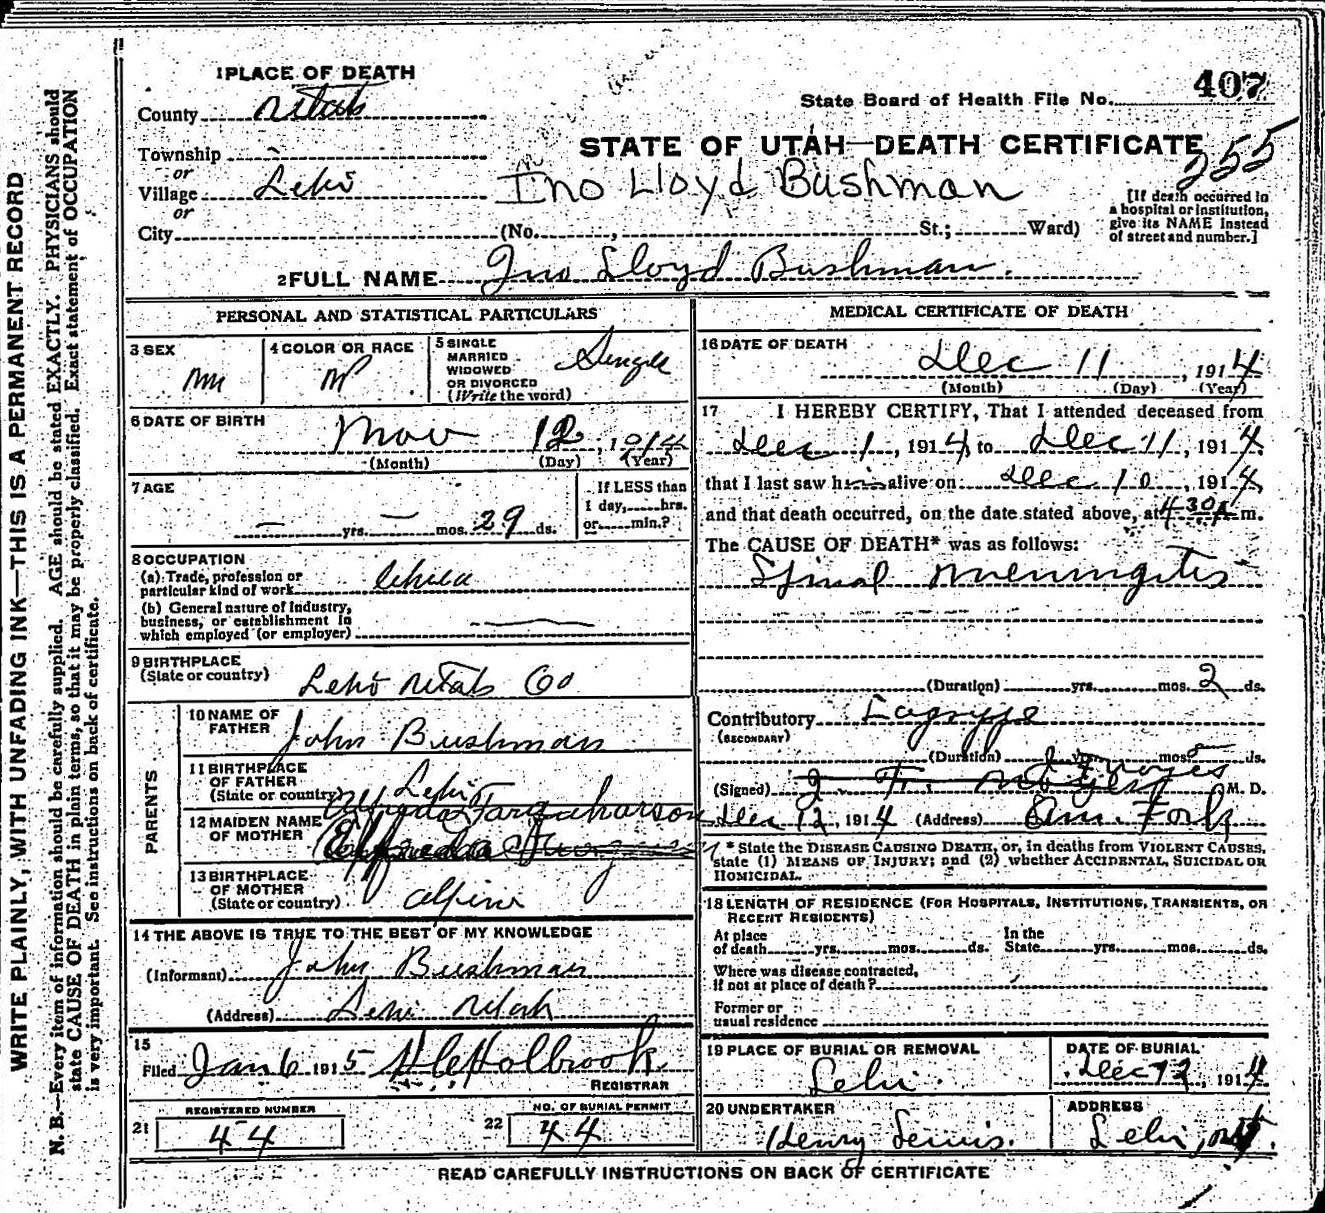 1 PLACE OF DEATH
407
State Board of Health File No.
County Utah
STATE OF UTAH—DEATH CERTIFICATE
255
Township
or
Village Lehi
Jno Lloyd Bushman
or
City (No. , St.; Ward)
[If death occurred in
a hospital or institution,
give its NAME instead
of street and number.]
2 FULL NAME Jno Lloyd Bushman.
WRITE PLAINLY, WITH UNFADING INK—THIS IS A PERMANENT RECORD
N. B.—Every item of information should be carefully supplied. AGE should be stated EXACTLY. PHYSICIANS should
state CAUSE OF DEATH in plain terms, so that it may be properly classified. Exact statement of OCCUPATION
is very important. See instructions on back of certificate.
PERSONAL AND STATISTICAL PARTICULARS
3 SEX
m
4 COLOR OR RACE
W
5 SINGLE
MARRIED
WIDOWED
OR DIVORCED
(Write the word)
Single
6 DATE OF BIRTH
Nov 12, 1914
(Month) (Day) (Year)
7 AGE
— yrs. — mos. 29 ds.
If LESS than
1 day, hrs.
or min.?
8 OCCUPATION
(a) Trade, profession or
particular kind of work Child
(b) General nature of Industry,
business, or establishment in
which employed (or employer)
9 BIRTHPLACE
(State or country) Lehi Utah Co
PARENTS
10 NAME OF
FATHER John Bushman
11 BIRTHPLACE
OF FATHER
(State or country) Lehi
12 MAIDEN NAME
OF MOTHER
Farquharson
13 BIRTHPLACE
OF MOTHER
(State or country) Alpine
14 THE ABOVE IS TRUE TO THE BEST OF MY KNOWLEDGE
(Informant) John Bushman
(Address) Lehi Utah
15
Filed Jan 6 1915 Holbrook
REGISTRAR
21 REGISTERED NUMBER
44
22 NO. OF BURIAL PERMIT
44
MEDICAL CERTIFICATE OF DEATH
16 DATE OF DEATH
Dec 11, 1914
(Month) (Day) (Year)
17 I HEREBY CERTIFY, That I attended deceased from
Dec 1, 1914, to Dec 11, 1914,
that I last saw him alive on Dec 10, 1914,
and that death occurred, on the date stated above, at 4 30 A m.
The CAUSE OF DEATH* was as follows:
Spinal Meningitis
(Duration) yrs. mos. 2 ds.
Contributory Lagrippe
(SECONDARY)
(Duration) yrs. mos. ds.
(Signed) J. F. Noyes M. D.
Dec 12, 1914 (Address) Am. Fork
* State the DISEASE CAUSING DEATH, or, in deaths from VIOLENT CAUSES,
state (1) MEANS OF INJURY; and (2) whether ACCIDENTAL, SUICIDAL OR
HOMICIDAL.
18 LENGTH OF RESIDENCE (FOR HOSPITALS, INSTITUTIONS, TRANSIENTS, OR
RECENT RESIDENTS)
At place
of death yrs. mos. ds.
In the
State yrs. mos. ds.
Where was disease contracted,
if not at place of death?
Former or
usual residence
19 PLACE OF BURIAL OR REMOVAL
Lehi.
DATE OF BURIAL
Dec 12, 1914
20 UNDERTAKER
Henry Lewis.
ADDRESS
Lehi, Ut.
READ CAREFULLY INSTRUCTIONS ON BACK OF CERTIFICATE